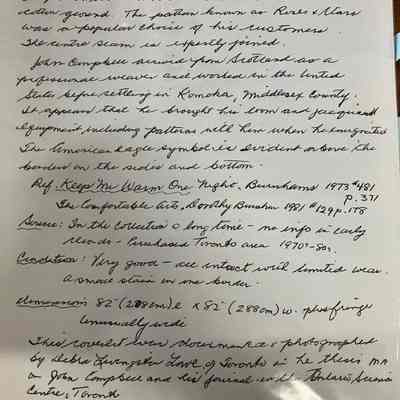 cotton ground. The pattern known as Roses & Stars
was a popular choice of his customers.
The centre seam is expertly joined.
John Campbell arrived from Scotland as a
professional weaver and worked in the United
States before settling in Komoka, Middlesex County.
It appears that he brought his loom and jacquard
equipment, including patterns with him when he emigrated.
The American eagle symbol is evident above the
borders on the sides and bottom.
Ref. Keep Me Warm One Night, Burnhams 1973 #481
p. 371
The Comfortable Arts, Dorothy Burnham 1981 #129 p. 178
Source: In the collection a long time - no info in early
records - Purchased Toronto area 1970s-80s.
Condition: Very good - all intact with limited wear.
A small stain in one border.
Dimensions 82" (208cm) l x 82" (288cm) w. plus fringe
Unusually wide
This coverlet was documented & photographed
by Debra Livingston Love of Toronto in her thesis MA
on John Campbell and his journal Ontario Science
Centre, Toronto